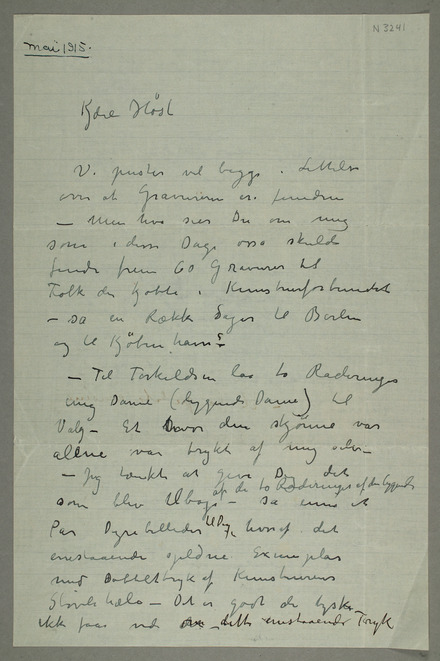 N 3241
Mai 1915.
Kjære Høst
Vi puster vel begge i Lettelse
over at Gravuren er funden
– Men hva sier Du om mig
som i disse Dage ossa skulde
finde frem 60 Gravurer til
Folk der kjøbte i Kunstnerforbundet
– sa en Række Sager til Berlin
og til Kjøbenhavn –
– Til Torkildsen laa to Raderinger
ung Dame (liggende Dame) til
Valg – Et Hvor den skjønne var
allene var trykt af mig selv –
– Jeg tænkte at give Dig det
som blev tilbage af de to Raderinger af den liggende
– sa ennu et
Par Dyrebilleder til Dig, hvoraf det
enestaaende sjeldne Exemplar
med Dobbelttryk af Kunstnerens
Støvlehæle – Det er godt de tyske
ikke faar ved om dette enestaaende Tryk